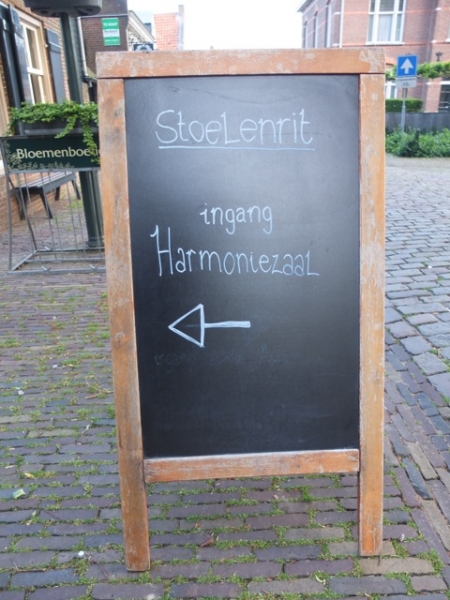 StoeLenrit
ingang
HarmoniezaaL
Bloemenboe